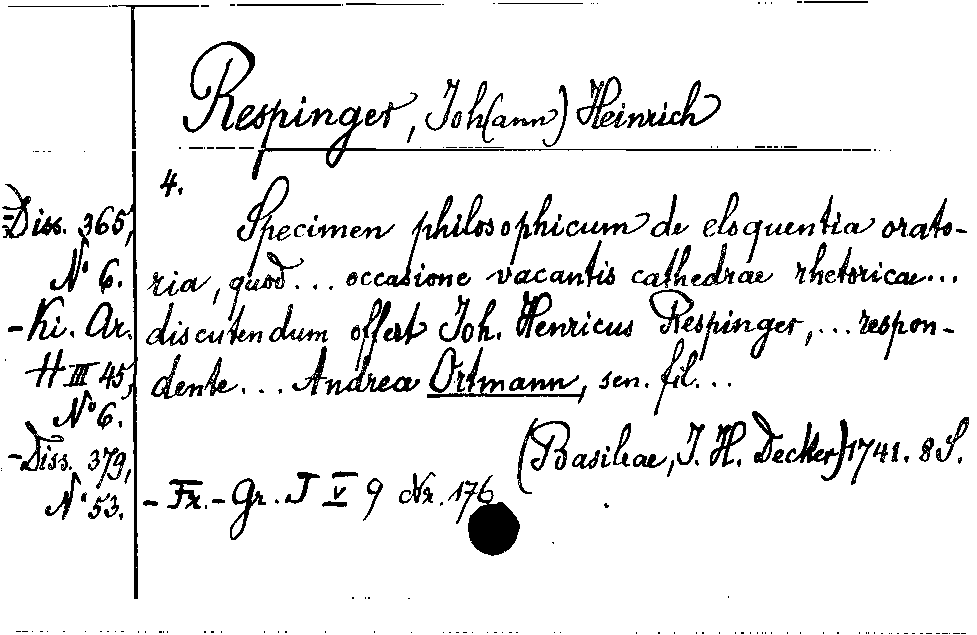 Respinger, Joh(ann) Heinrich
4.
=Diss. 365,
No 6.
- Ki. Ar.
H III 45,
No 6.
- Diss. 379,
No 53.
Specimen philosophicum de eloquentia orato-
ria, quod... occasione vacantis cathedrae rhetoricae...
discutendum offert Joh. Henricus Respinger,... respon-
dente... Andrea Ortmann, sen. fil...
(Basileae, J. H. Decker) 1741. 8 S.
- Fr. - Gr. J V 9 Nr. 176